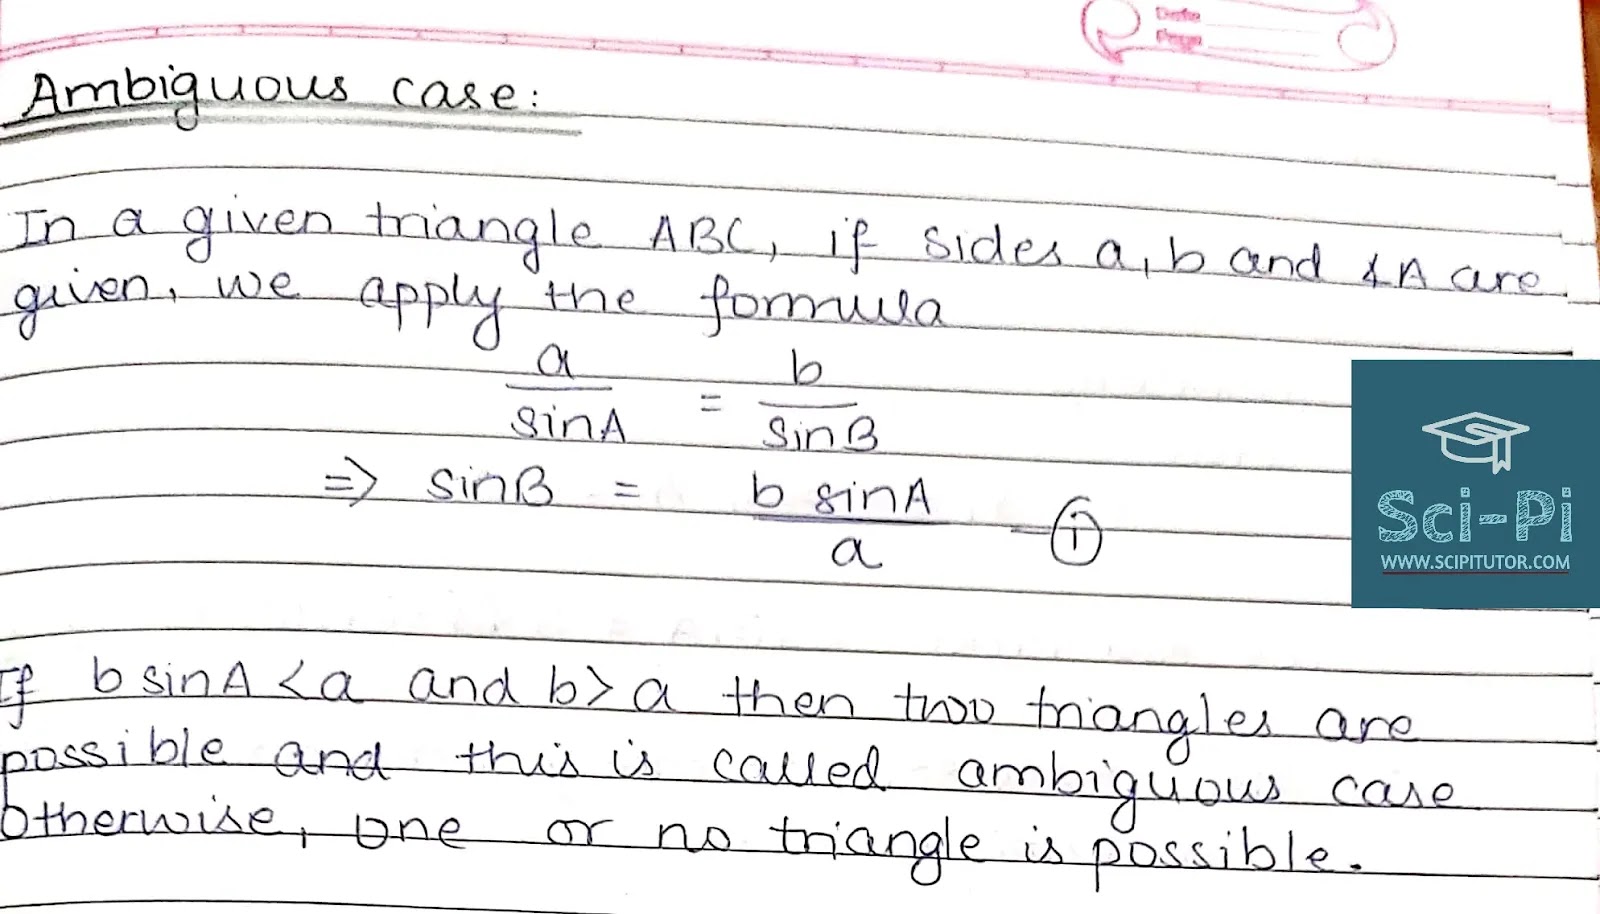 Date
Page
Ambiguous case:
In a given triangle ABC, if sides a, b and ∡A are
given, we apply the formula
a/sinA = b/sinB
=> sinB = b sinA/a — ⓘ
Sci-Pi
WWW.SCIPITUTOR.COM
If b sinA < a and b > a then two triangles are
possible and this is called ambiguous case
otherwise, one or no triangle is possible.